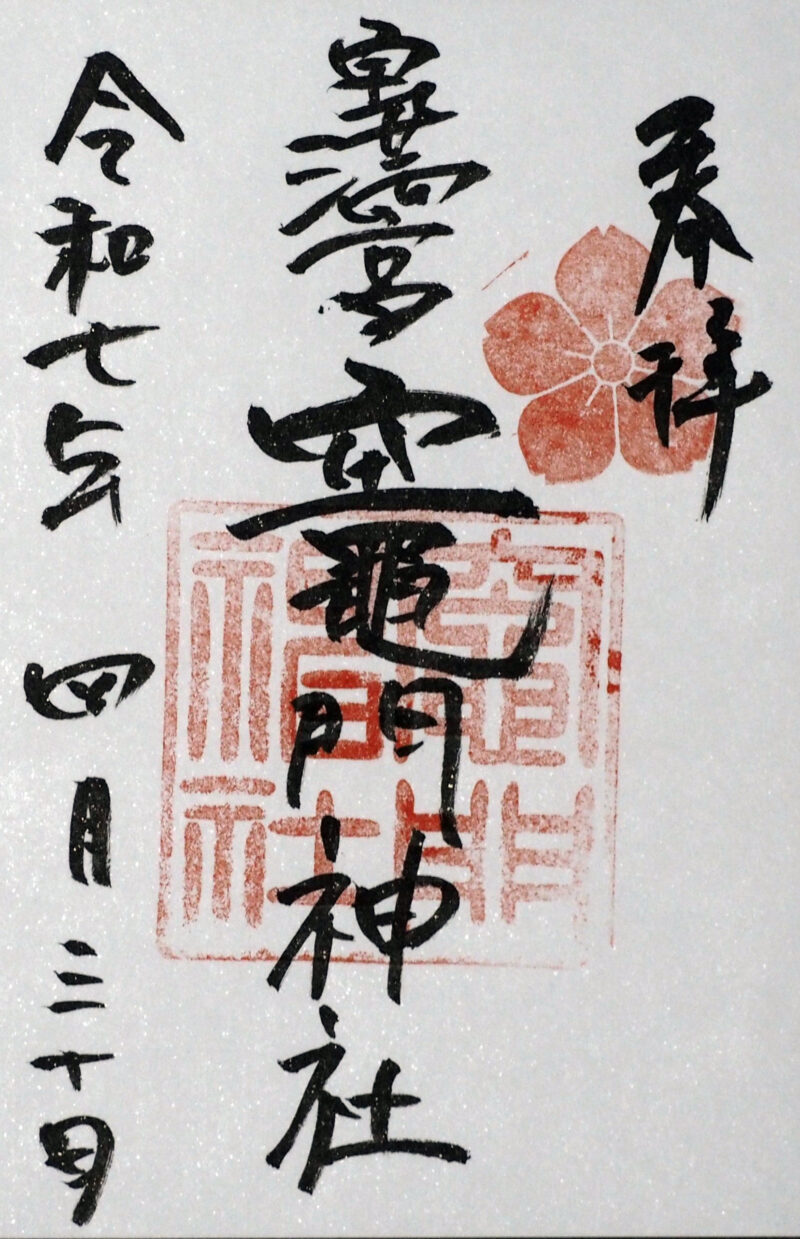 奉拝
宝満宮 竈門神社
令和七年 四月三十日
竈門
神社